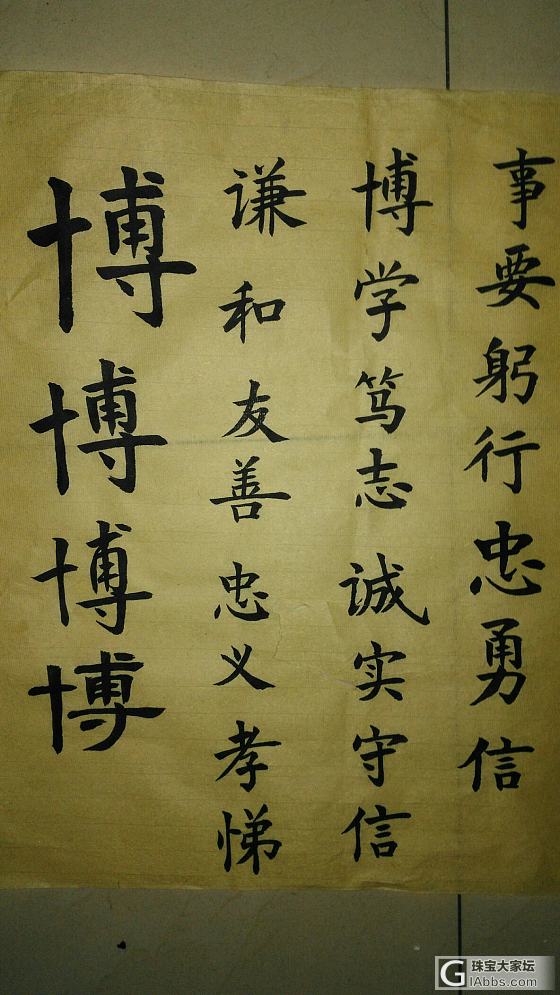 事要躬行忠勇信
博学笃志诚实守信
谦和友善忠义孝悌
博博博博
珠宝大家坛
GIAbbs.com